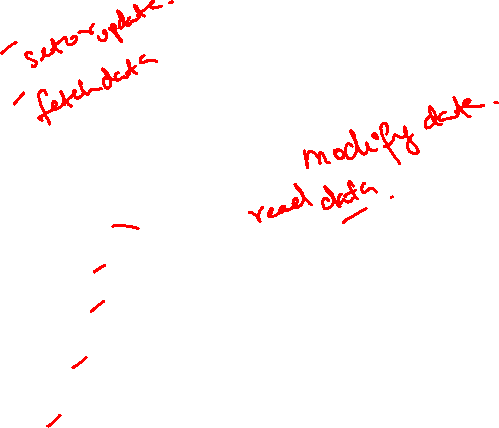 - set or update.
- fetch data
modify date.
read data.